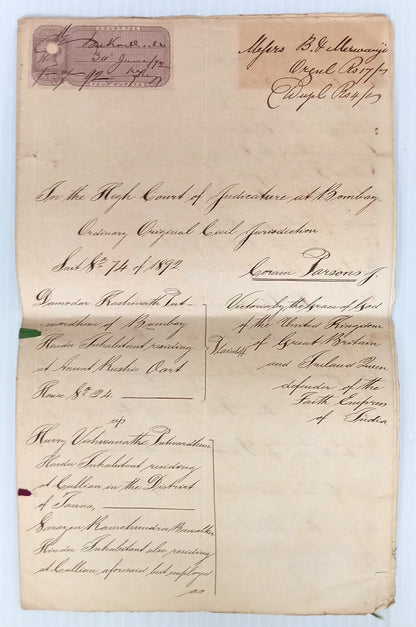 COURT FEE
3rd June/92
Messrs B & Merwanji
Orgnl Rs 17/-
Dupl Rs 4/-
In the High Court of Judicature at Bombay.
Ordinary Original Civil Jurisdiction
Suit No 74 of 1892
Coram Parsons J.
Damodar Kashinath Put-
wardhan of Bombay
Hindu Inhabitant residing
at Oart
House No 24.
Plaintiff
Victoria by the Grace of God
of the United Kingdom
of Great Britain
and Ireland Queen
defender of the
Faith Empress
of India.
vs
Hurry Vishwanath Putwardhan
Hindu Inhabitant residing
at Callian in the District
of Tanna,
Narayen Ramchundra
Hindu Inhabitant also residing
at Callian aforesaid but employed
as